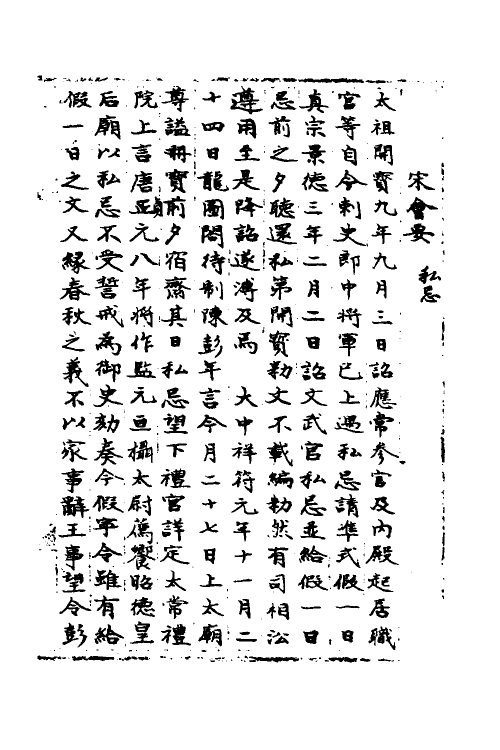 宋會要 私忌
太祖開寳九年九月三日詔應常參官及內殿起居職
官等自今刺史郎中將軍已上遇私忌請準式假一日
真宗景德三年二月二日詔文武官私忌並給假一日
忌前之夕聽還私第開寳勑文不載編勑然有司相沿
遵用至是降詔遂溥及焉 大中祥符元年十一月二
十四日龍圖閣待制陳彭年言今月二十七日上太廟
尊謚冊寳前夕宿齋其日私忌望下禮官詳定太常禮
院上言唐正貞元八年將作監元亘攝太尉薦饗昭德皇
后廟以私忌不受誓戒為御史劾奏今假寧令雖有給
假一日之文又緣春秋之義不以家事辭王事望令彭